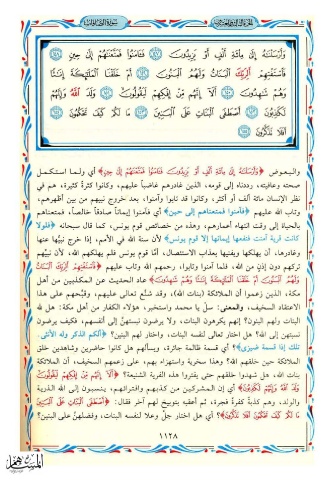 وَأَرْسَلْنَاهُ إِلَىٰ مِائَةِ أَلْفٍ أَوْ يَزِيدُونَ ﴿١٤٧﴾ فَآمَنُوا فَمَتَّعْنَاهُمْ إِلَىٰ حِينٍ ﴿١٤٨﴾
فَاسْتَفْتِهِمْ أَلِرَبِّكَ الْبَنَاتُ وَلَهُمُ الْبَنُونَ ﴿١٤٩﴾ أَمْ خَلَقْنَا الْمَلَائِكَةَ إِنَاثًا
وَهُمْ شَاهِدُونَ ﴿١٥٠﴾ أَلَا إِنَّهُم مِّنْ إِفْكِهِمْ لَيَقُولُونَ ﴿١٥١﴾ وَلَدَ اللَّهُ وَإِنَّهُمْ
لَكَاذِبُونَ ﴿١٥٢﴾ أَصْطَفَى الْبَنَاتِ عَلَى الْبَنِينَ ﴿١٥٣﴾ مَا لَكُمْ كَيْفَ تَحْكُمُونَ ﴿١٥٤﴾
أَفَلَا تَذَكَّرُونَ ﴿١٥٥﴾
والبعوض ﴿وَأَرْسَلْنَاهُ إِلَىٰ مِائَةِ أَلْفٍ أَوْ يَزِيدُونَ فَآمَنُوا فَمَتَّعْنَاهُمْ إِلَىٰ حِينٍ﴾ أي ولما استكمل
صحته وعافيته، رددناه إلى قومه، الذين غادرهم غاضباً عليهم، وكانوا كثرةً كثيرة، هم في
نظر الإنسان مائة ألف أو أكثر، وكانوا قد تابوا وآمنوا، بعد خروج نبيهم من بين أظهرهم،
وتاب الله عليهم ﴿فآمنوا فمتعناهم إلى حين﴾ أي فآمنوا إيماناً صادقاً خالصاً، فمتعناهم
بالحياة إلى وقت انتهاء أعمارهم، وهذه من خصائص قوم يونس، كما قال سبحانه ﴿فلولا
كانت قرية آمنت فنفعها إيمانها إلا قوم يونس﴾ لأن سنة الله في الأمم، إذا خرج نبيُّها عنها
وغادرها، أن يهلكها ويفنيها بعذاب الاستئصال، أمَّا قوم يونس فلم يهلكهم الله، لأن نبيَّهم
تركهم دون إذنٍ من الله، فلما آمنوا وتابوا، رحمهم الله وتاب عليهم ﴿فَاسْتَفْتِهِمْ أَلِرَبِّكَ الْبَنَاتُ
وَلَهُمُ الْبَنُونَ أَمْ خَلَقْنَا الْمَلَائِكَةَ إِنَاثًا وَهُمْ شَاهِدُونَ﴾ عاد الحديث عن المكذبين من أهل
مكة، الذين زعموا أن الملائكة (بنات الله)، وقد شنَّع تعالى عليهم، وقبَّحهم على هذا
الاعتقاد السخيف، والمعنى: سلْ يا محمد واستخبر، هؤلاء الكفار من أهل مكة: هل لله
البنات ولهم البنون؟ إنهم يكرهون البنات، ولا يرضون نسبتهنَّ إلى أنفسهم، فكيف يرضون
نسبتهن إلى الله؟ هل اختار تعالى لنفسه البنات، واختار لهم البنين؟ ﴿ألكم الذكر وله الأنثى
تلك إذا قسمة ضيزى﴾؟ أي قسمة ظالمة جائرة، ويسألهم هل كانوا حاضرين وشاهدين خلق
الملائكة حين خلقهم الله؟ وهذا سخرية واستهزاء بهم، على زعمهم السخيف، أن الملائكة
بنات الله، هل شهدوا خلقهم حتى يفتروا هذه الفرية الشنيعة؟ ﴿أَلَا إِنَّهُم مِّنْ إِفْكِهِمْ لَيَقُولُونَ
وَلَدَ اللَّهُ وَإِنَّهُمْ لَكَاذِبُونَ﴾ أي إن المشركين من كذبهم وافترائهم، ينسبون إلى الله الذرية
والولد، وهم كذبةٌ كفرةٌ فجرة، ثم أعقبه بتوبيخ لهم آخر فقال: ﴿أَصْطَفَى الْبَنَاتِ عَلَى الْبَنِينَ
مَا لَكُمْ كَيْفَ تَحْكُمُونَ أَفَلَا تَذَكَّرُونَ﴾؟ أي هل اختار جلَّ وعلا لنفسه البنات، وفضلهنَّ على البنين؟
١١٢٨